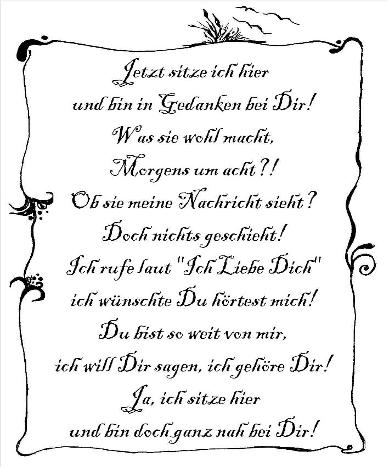 Jetzt sitze ich hier
und bin in Gedanken bei Dir!
Was sie wohl macht,
Morgens um acht?!
Ob sie meine Nachricht sieht?
Doch nichts geschieht!
Ich rufe laut "Ich Liebe Dich"
ich wünschte Du hörtest mich!
Du bist so weit von mir,
ich will Dir sagen, ich gehöre Dir!
Ja, ich sitze hier
und bin doch ganz nah bei Dir!